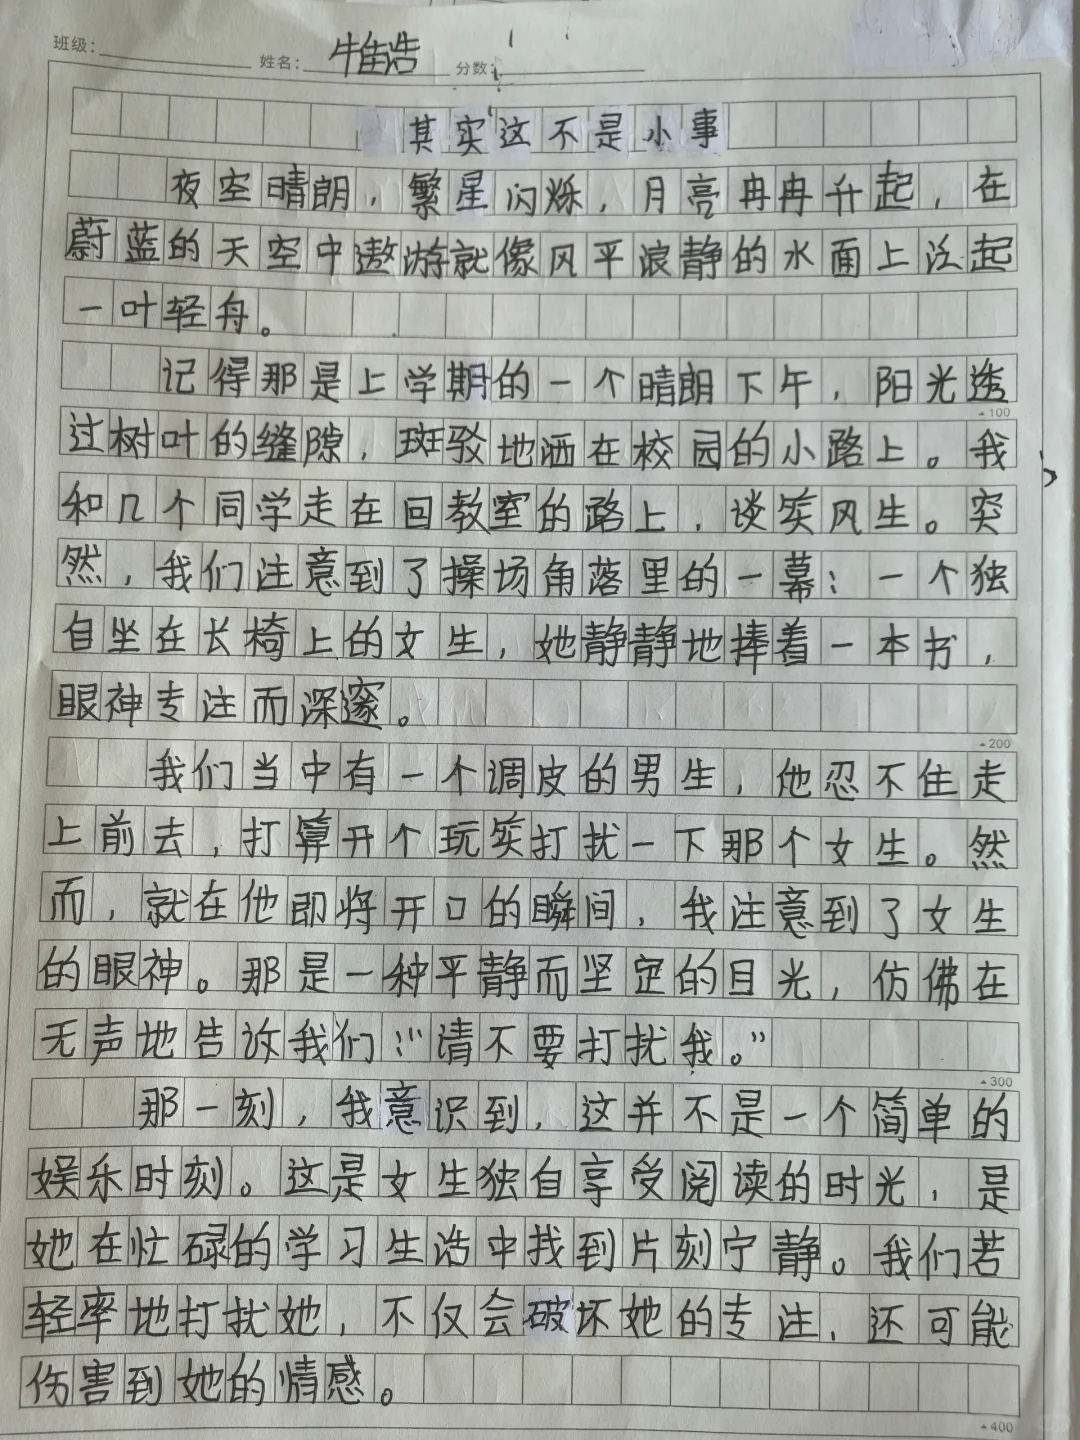 班级: 姓名: 牛佳浩 分数:
其实这不是小事
夜空晴朗，繁星闪烁，月亮冉冉升起，在
蔚蓝的天空中遨游就像风平浪静的水面上泛起
一叶轻舟。
记得那是上学期的一个晴朗下午，阳光透
100
过树叶的缝隙，斑驳地洒在校园的小路上。我
和几个同学走在回教室的路上，谈笑风生。突
然，我们注意到了操场角落里的一幕：一个独
自坐在长椅上的女生，她静静地捧着一本书，
眼神专注而深邃。
200
我们当中有一个调皮的男生，他忍不住走
上前去，打算开个玩笑打扰一下那个女生。然
而，就在他即将开口的瞬间，我注意到了女生
的眼神。那是一种平静而坚定的目光，仿佛在
无声地告诉我们：“请不要打扰我。”
300
那一刻，我意识到，这并不是一个简单的
娱乐时刻。这是女生独自享受阅读的时光，是
她在忙碌的学习生活中找到片刻宁静。我们若
轻率地打扰她，不仅会破坏她的专注，还可能
伤害到她的情感。
400